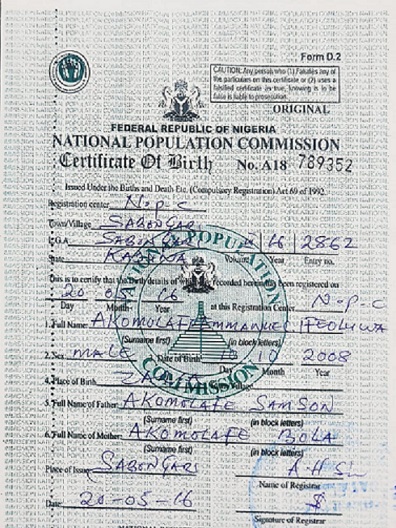 Form D.2
CAUTION: Any person who (1) Falsifies any of
the particulars on this certificate or (2) uses a
falsified certificate as true, knowing is to be
false is liable to prosecution.
ORIGINAL
FEDERAL REPUBLIC OF NIGERIA
NATIONAL POPULATION COMMISSION
Certificate Of Birth No. A18 789352
Issued Under the Births and Death Etc. (Compulsory Registration) Act 69 of 1992.
Registration center N.p.c
Town/Village SABONGARI
L.G.A SABON GARI 16 2862
State KADUNA Volume Year Entry no.
This is to certify that the birth details of recorded herein has been registered on
20 05 16 at this Registration Center N.p.c
Day Month Year
1. Full Name: AKOMOLAFE EMMANUEL IFEOLUWA
(Surname first) (in block letters)
2. Sex MALE Date of Birth 10 10 2008
Day Month Year
4. Place of Birth ZARIA
5. Full Name of Father: AKOMOLAFE SAMSON
(Surname first) (in block letters)
6. Full Name of Mother: AKOMOLAFE BOLA
(Surname first) (in block letters)
Place of Issue SABONGARI
Name of Registrar
Date: 20-05-16
Signature of Registrar
NATIONAL POPULATION
COMMISSION